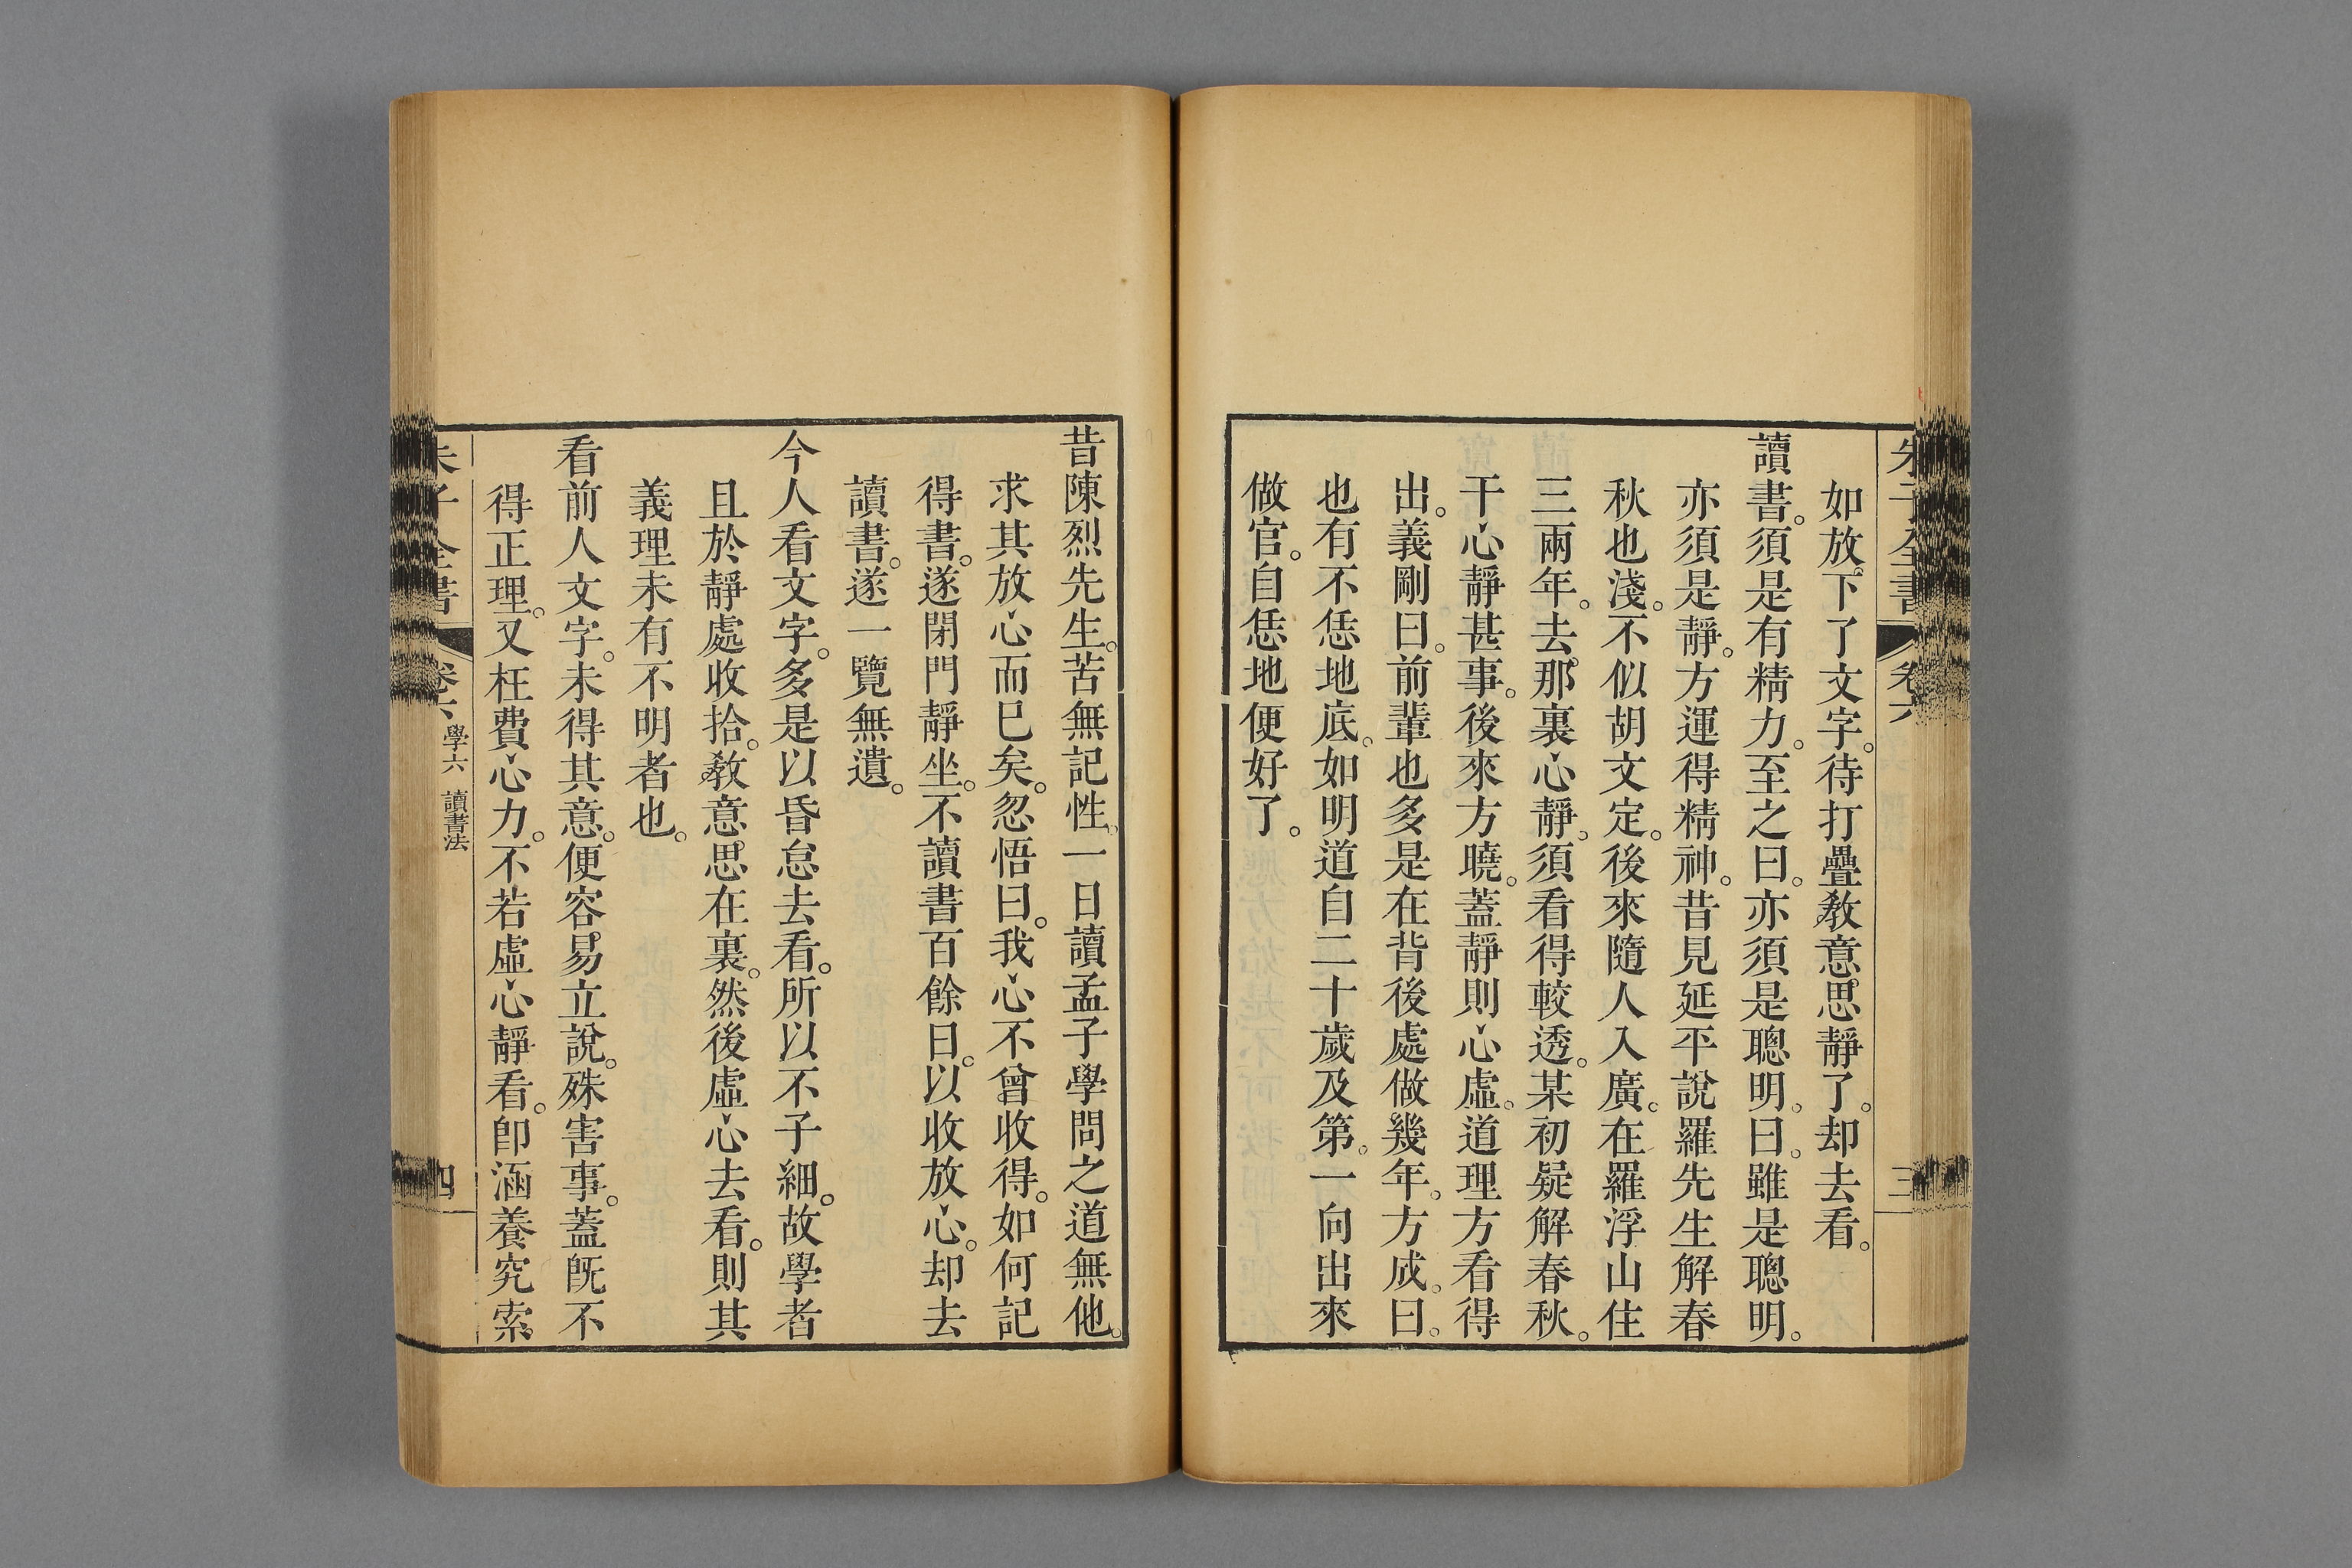 朱子全書 卷六 三
如放下了文字。待打疊教意思靜了。却去看。
讀書。須是有精力。至之曰。亦須是聰明。曰。雖是聰明。
亦須是靜。方運得精神。昔見延平說羅先生解春
秋也淺。不似胡文定。後來隨人入廣。在羅浮山住
三兩年。去那裏心靜。須看得較透。某初疑解春秋。
干心靜甚事。後來方曉。蓋靜則心虛。道理方看得
出。義剛曰。前輩也多是在背後處做幾年。方成。曰。
也有不恁地底。如明道自二十歲及第。一向出來
做官。自恁地便好了。
昔陳烈先生。苦無記性。一日讀孟子學問之道無他。
求其放心而已矣。忽悟曰。我心不曾收得。如何記
得書。遂閉門靜坐。不讀書百餘日。以收放心。却去
讀書。遂一覽無遺。
今人看文字。多是以昏怠去看。所以不子細。故學者
且於靜處收拾。教意思在裏。然後虛心去看。則其
義理未有不明者也。
看前人文字。未得其意。便容易立說。殊害事。蓋旣不
得正理。又枉費心力。不若虛心靜看。卽涵養究索。
朱子全書 卷六 學六 讀書法 四